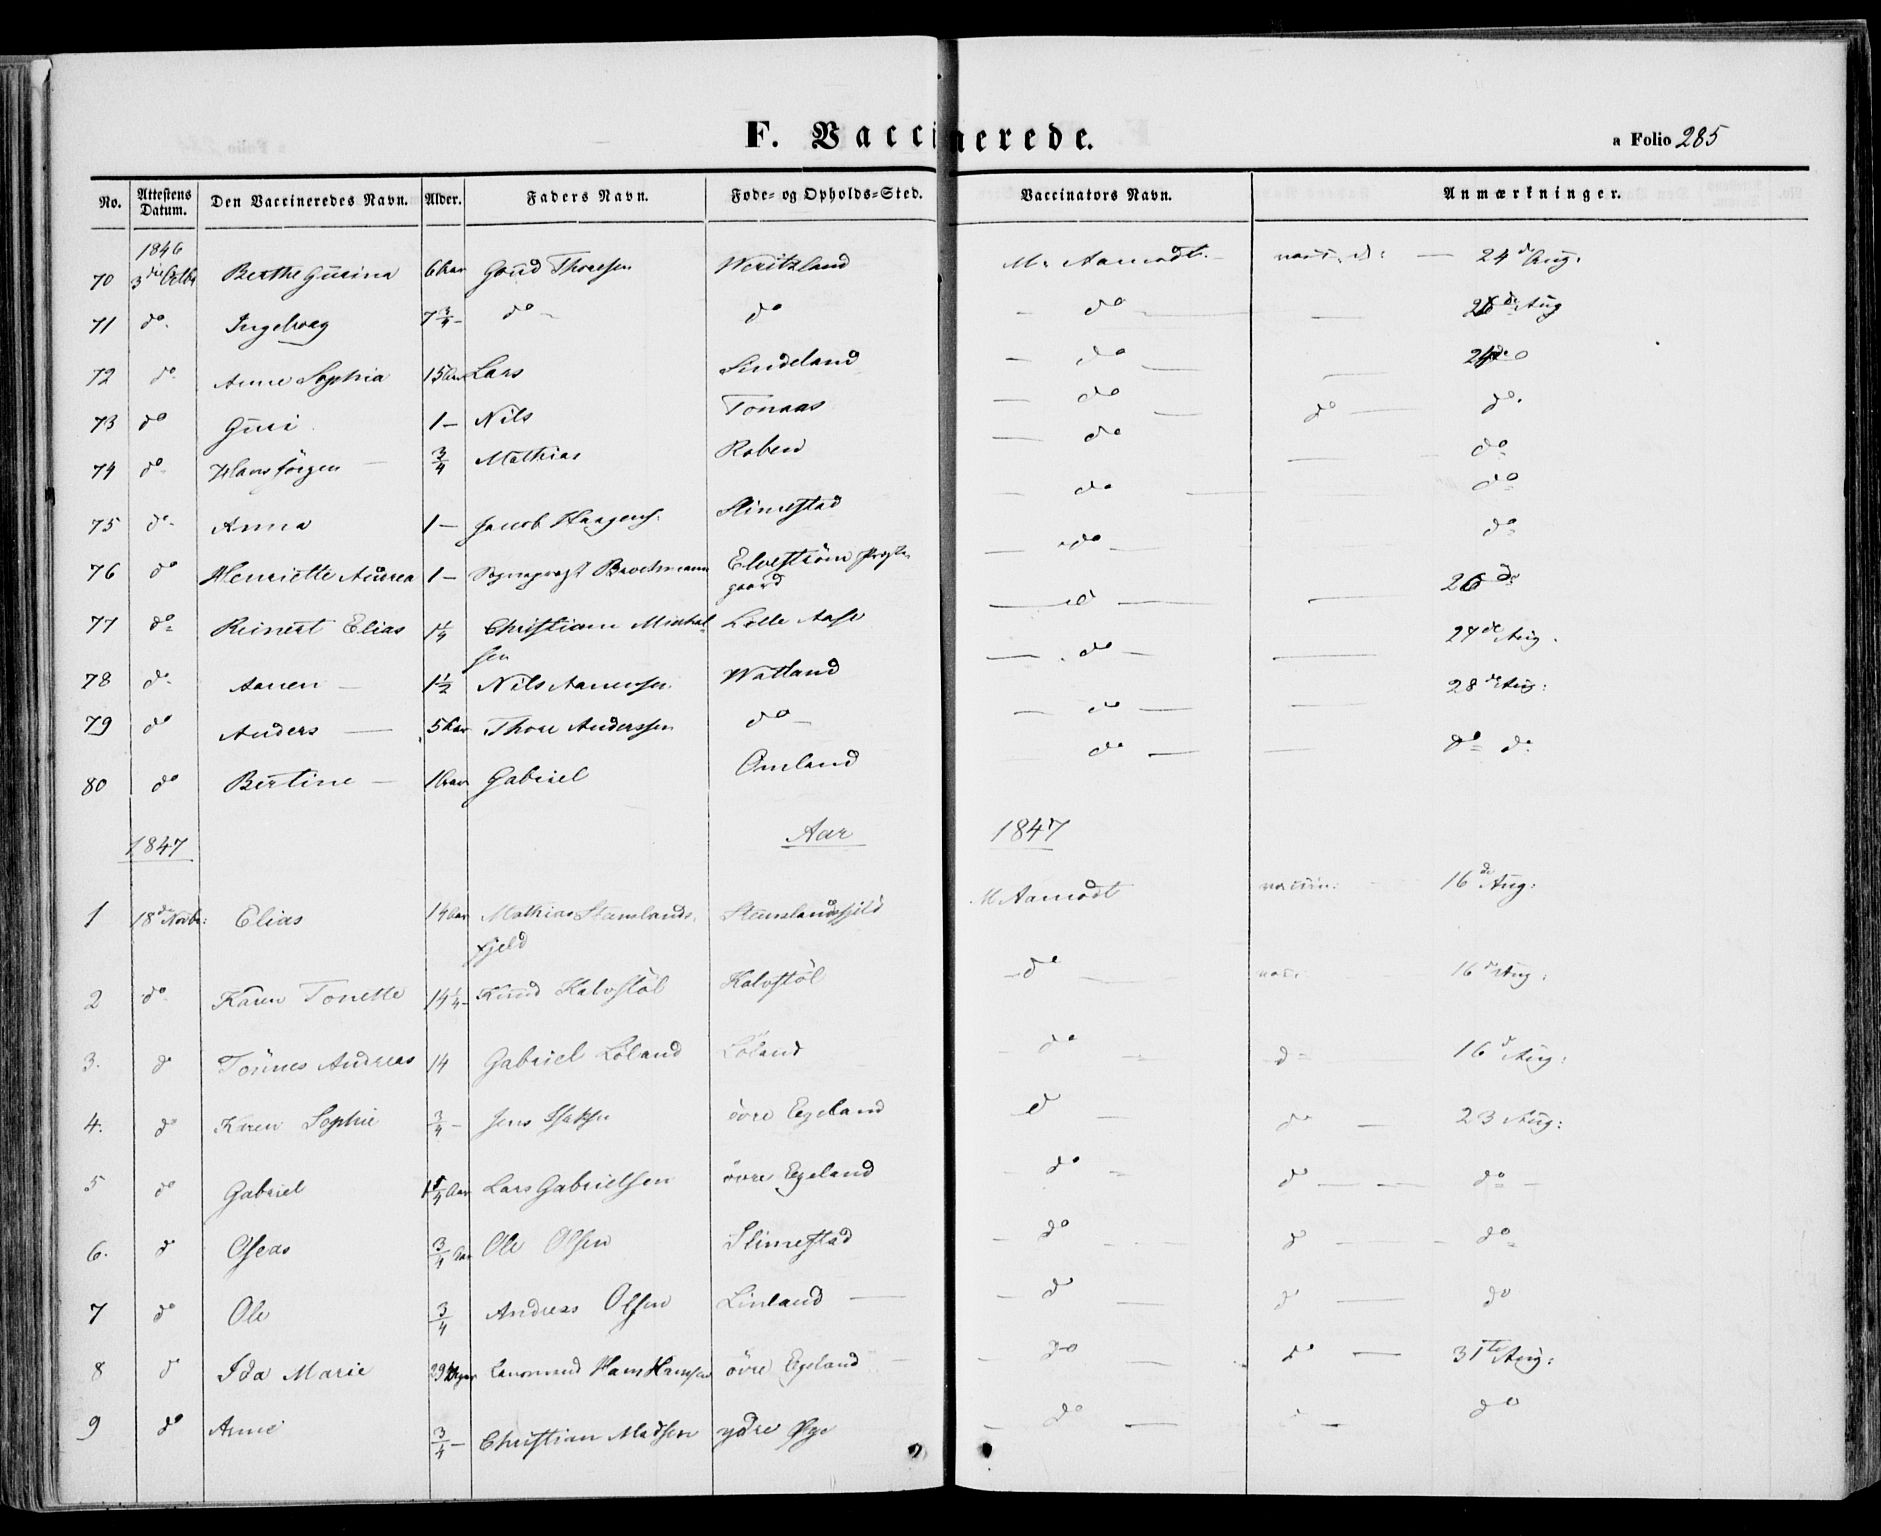 F. Vaccinerede.
a Folio 285
No. Attestens Datum. Den Vaccineredes Navn. Alder. Faders Navn. Føde- og Opholds-Sted. Vaccinators Navn. Anmærkninger.
1846
70 3die Octbr Berthe Gurina 6 Aar Gund Thoresen M. Aamodt. 24de Aug:
71 do. Ingebaag 7 3/4 – do – do – do – 28de Aug
72 do Anne Sophia 15 Aar Lars Sindeland – do – 24de
73 do Guri 1 – Nils Tonaas – do – do – do.
74 do Hans Jörgen – 3/4 Mathias Roben – do do
75 do Anna 1 – Jacob Haagens. Slimestad – do do
76 do Henriette Aurea 1 – Sogneprest Elveström Prestegaard – do – do
77 do Reinert Elias 1 1/4 Christian Michalsen Lolle – do – 26de
78 do Aanen – 1 1/2 Nils Aanensen Watland – do – 27de Aug.
79 do Anders – 5 Aar Thore Anderssen do – – do – 28de Aug:
80 do Bertine – 1 Aar Gabriel Omland do – do do
1847 Aar 1847
1 18de Novbr: Elias 14 Aar Mathias Stamslandsfjeld Stamslandsfjeld M Aamodt vaccin: 16de Aug:
2 do Karen Tonette 14 1/4 – Knud Kalvstöl Kalvstöl – do – vac: 16de Aug:
3. do Tönnes Andreas 14 Gabriel Löland Löland – do – d – 16d Aug:
4. do Karen Sophie 3/4 – Jens övre Egeland d – do – 23 Aug:
5 do Gabriel Aar Lars Gabrielsen övre Egeland – do – do – do –
6. d Oseas 3/4 Aar Ole Olsen Slimestad – do – d – do
7 do Ole 3/4 Andreas Olsen Linland – – do – d – do
8 d Ida Marie Lensmand Hans Hansen övre Egeland – – do – do – 31te Aug:
9 do Anne 3/4 – Christian Madsen ydre Öye – do – d – do